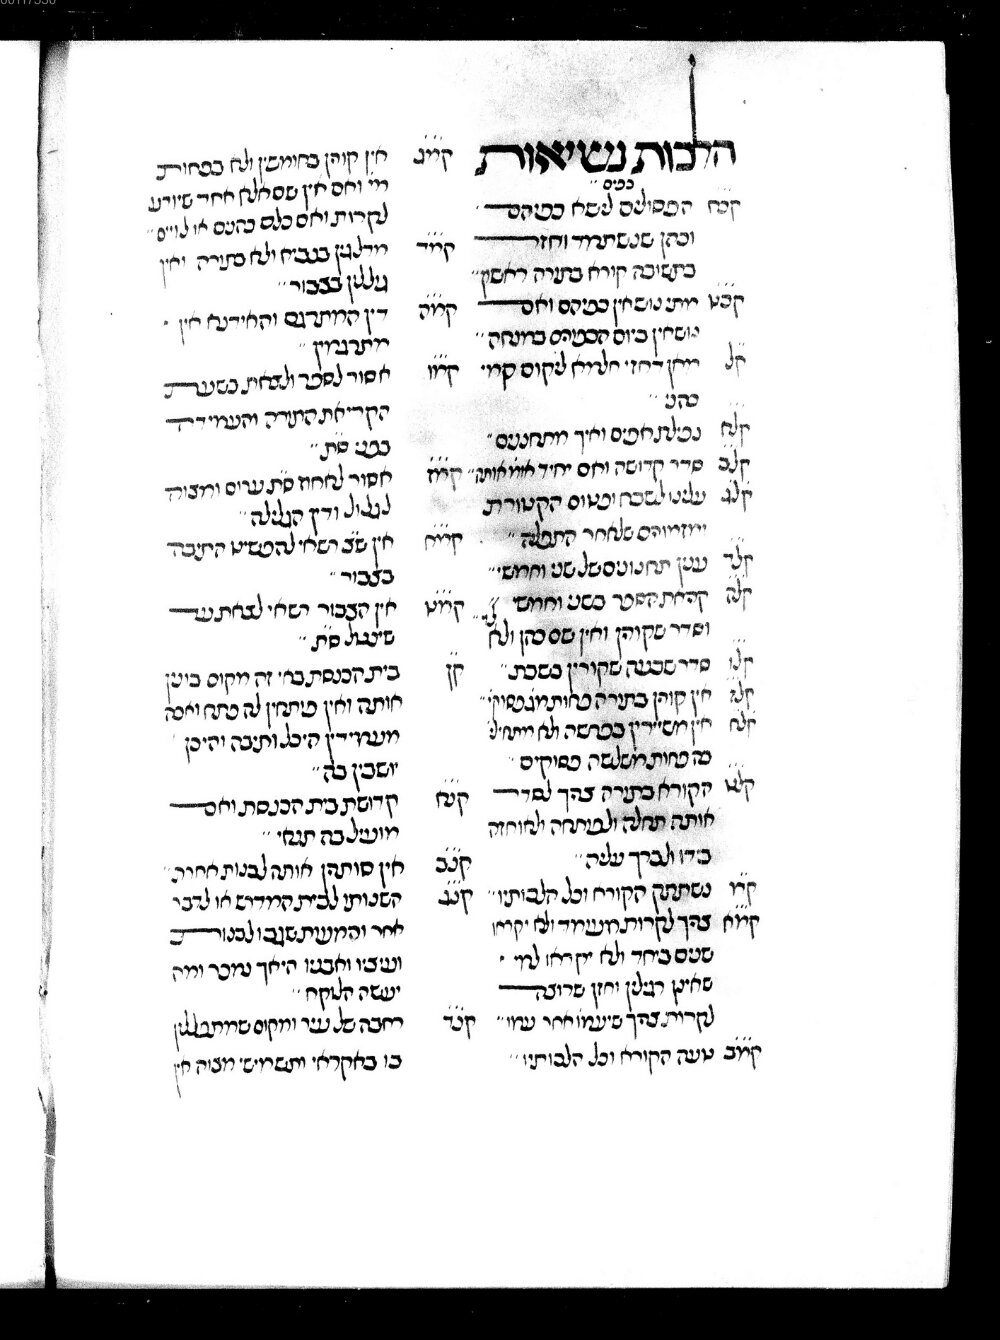 הלכות נשיאות
כפים
קכח הפסולים לישא כפיהם
וכהן שנשתמד וחזר
בתשובה קורא בתורה ראשון
קכט מתי נושאין כפיהם ואם
נושאין ביום הכפורים במנחה
קל מאן דחזי חלמא ליקום קמי
כהני
קלא נפילת אפים ואיך מתחננים
קלב סדר קדושה ואם יחיד אומ' אותה
קלג עלינו לשבח ופטום הקטורת
ומזמורים שלאחר התפלה
קלד ענין תחנונים של שני וחמשי
קלה קריאת הספר בשני וחמשי
וסדר שקורין ואין שם כהן ולוי
קלו סדר שבעה שקורין בשבת
קלז אין קורין בתורה פחות מג' פסוקי'
קלח אין משיירין בפרשה ולא מתחילי'
בה פחות משלשה פסוקים
קלט הקורא בתורה צריך לסדר
אותה תחלה ולפותחה ולאוחזה
בידו ולברך עליה
קמ נשתתק הקורא וכל הלכותיו
קמא צריך לקרות מעומד ולא יקראו
שנים ביחד ולא יקראו למי
שאינן רגילין וחזן שרוצה
לקרות צריך שיעמוד אחר עמו
קמב טעה הקורא וכל הלכותיו
קמג אין קורין בחומשין ולא בפחות
מי' ואם אין שם אלא אחד שיודע
לקרות ואם כלם כהנים או לויים
קמד מדלגין בנביא ולא בתורה ואין
גוללין בצבור
קמה דין המתרגם והאידנא אין
מתרגמין
קמו אסור לספר ולצאת בשעת
הקריאת התורה והעמידה
בפני ס"ת
קמז אסור לאחוז ס"ת ערום ומצוה
לגלול ודין הגלילה
קמח אין ש"צ רשאי להפשיט התיבה
בצבור
קמט אין הצבור רשאי לצאת עד
שינטול ס"ת
קן בית הכנסת באי זה מקום בונין
אותה ואין פותחין לה פתח ואיכה
מעמידין היכל ותיבה והיכן
יושבין בה
קנא קדושת בית הכנסת ואם
מועיל בה תנאי
קנב אין סותרין אותה לבנות אחרת
קנג השנותו לבית המדרש או לדבר
אחר והמעות שגבו לבנות
ועיציו ואבניו היאך נמכר ומה
יעשה הלוקח
קנד רחבה של עיר ומקום שמתפללין
בו באקראי ותשמישי מצוה אין